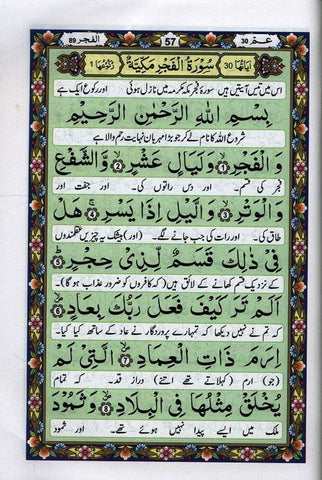 عـم ٣٠ 30 57 الفجر ٨٩ 89
اٰیَاتُهَا 30 سُوْرَةُ الْفَجْرِ مَكِّیَّةٌ رُكُوْعُهَا 1
اس میں تیس آیتیں ہیں سورۂ فجر مکہ مکرمہ میں نازل ہوئی اور رکوع ایک ہے
بِسْمِ اللهِ الرَّحْمٰنِ الرَّحِیْمِ
شروع اللہ کا نام لے کر جو بڑا مہربان نہایت رحم والا ہے
وَ الْفَجْرِ ۙ﴿1﴾ وَ لَیَالٍ عَشْرٍ ۙ﴿2﴾ وَّ الشَّفْعِ
فجر کی قسم۔ اور دس راتوں کی۔ اور جفت اور
وَ الْوَتْرِ ۙ﴿3﴾ وَ الَّیْلِ اِذَا یَسْرِ ۚ﴿4﴾ هَلْ
طاق کی۔ اور رات کی جب جانے لگے۔ (اور) بیشک یہ چیزیں عقلمندوں
فِیْ ذٰلِكَ قَسَمٌ لِّذِیْ حِجْرٍ ؕ﴿5﴾
کے نزدیک قسم کھانے کے لائق ہیں (کہ کافروں کو ضرور عذاب ہو گا)۔
اَلَمْ تَرَ كَیْفَ فَعَلَ رَبُّكَ بِعَادٍ ۪ۙ﴿6﴾
کہ تم نے نہیں دیکھا کہ تمہارے پروردگار نے عاد کے ساتھ کیا کیا۔
اِرَمَ ذَاتِ الْعِمَادِ ۪ۙ﴿7﴾ الَّتِیْ لَمْ
(جو) ارم (کہلاتے تھے اتنے) دراز قد۔ کہ تمام
یُخْلَقْ مِثْلُهَا فِی الْبِلَادِ ۪ۙ﴿8﴾ وَ ثَمُوْدَ
ملک میں ایسے پیدا نہیں ہوئے تھے۔ اور ثمود